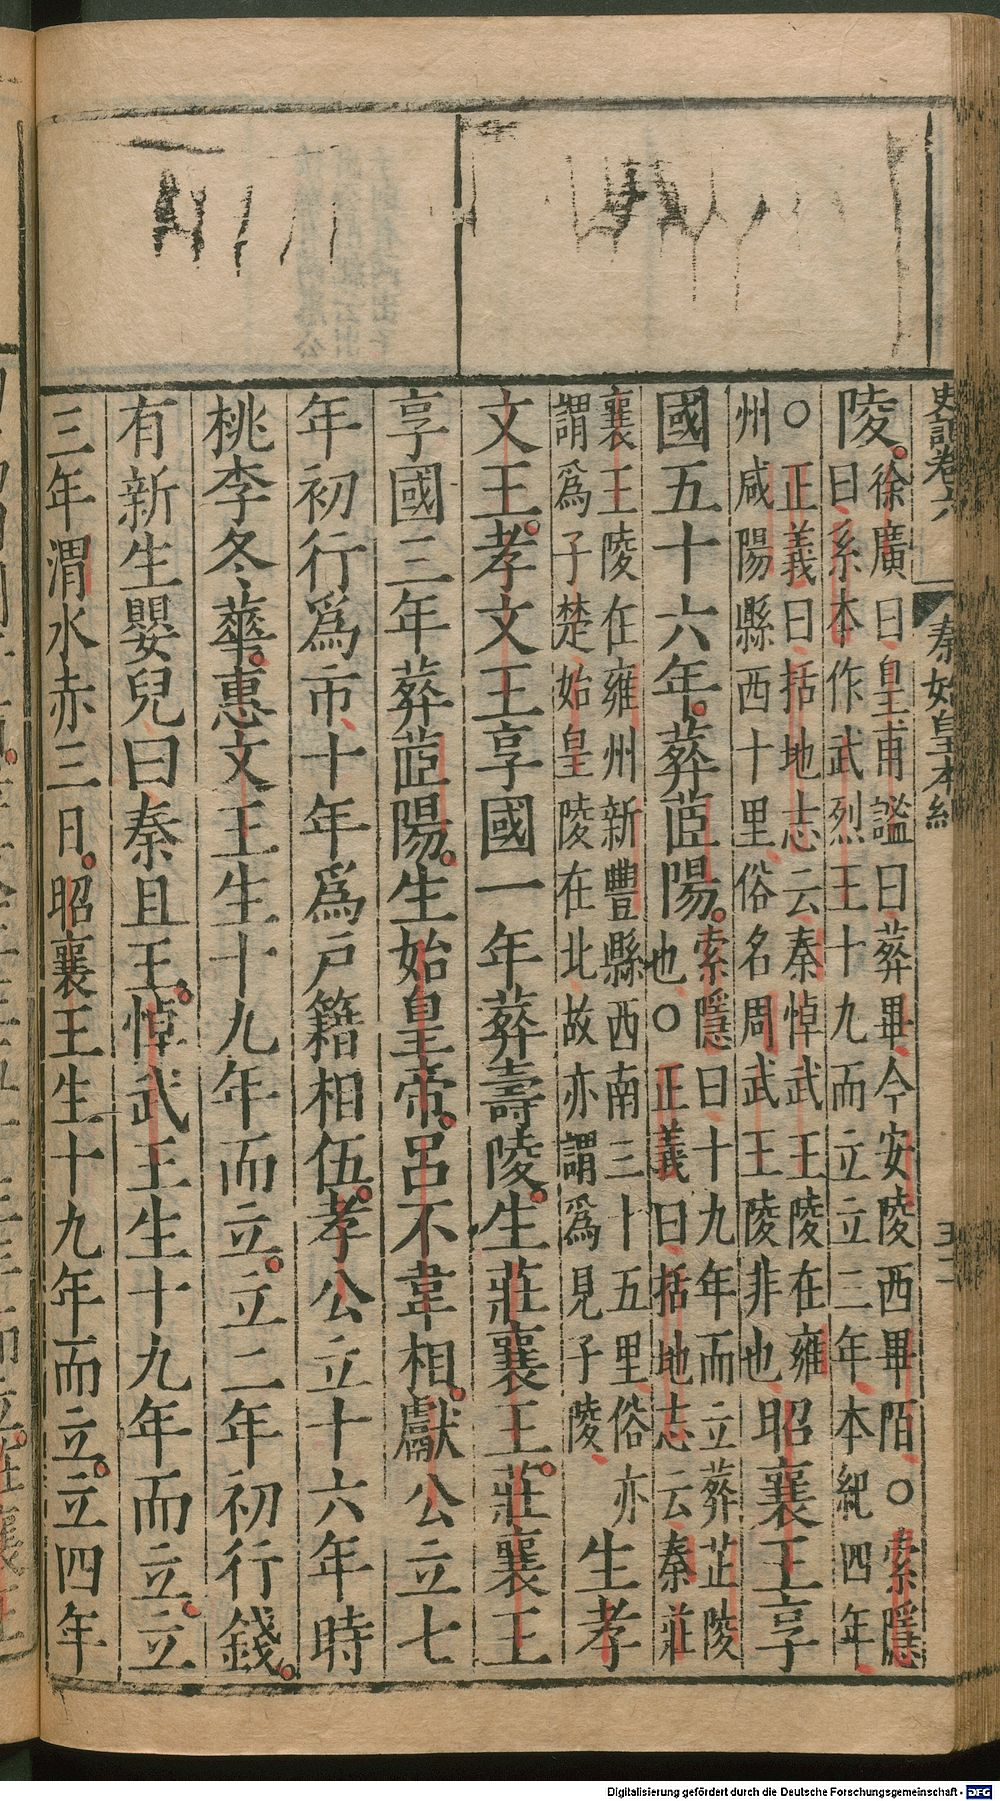 史記卷六 秦始皇本紀
陵。徐廣曰皇甫謐曰葬畢今安陵西畢陌〇索隱
曰系本作武烈王十九而立立三年本紀四年
〇正義曰括地志云秦悼武王陵在雍
州咸陽縣西十里俗名周武王陵非也昭襄王享
國五十六年。葬茝陽。索隱曰十九年而立葬芷陵
也〇正義曰括地志云秦莊
襄王陵在雍州新豐縣西南三十五里俗亦
謂爲子楚始皇陵在北故亦謂爲見子陵生孝
文王。孝文王享國一年葬壽陵。生莊襄王。莊襄王
享國三年葬茝陽。生始皇帝。呂不韋相。獻公立七
年初行爲市、十年爲戶籍相伍。孝公立十六年時
桃李冬華。惠文王生十九年而立。立二年初行錢。
有新生嬰兒、曰秦且王。悼武王生十九年而立。立
三年渭水赤三日。昭襄王生十九年而立。立四年
Digitalisierung gefördert durch die Deutsche Forschungsgemeinschaft - DFG